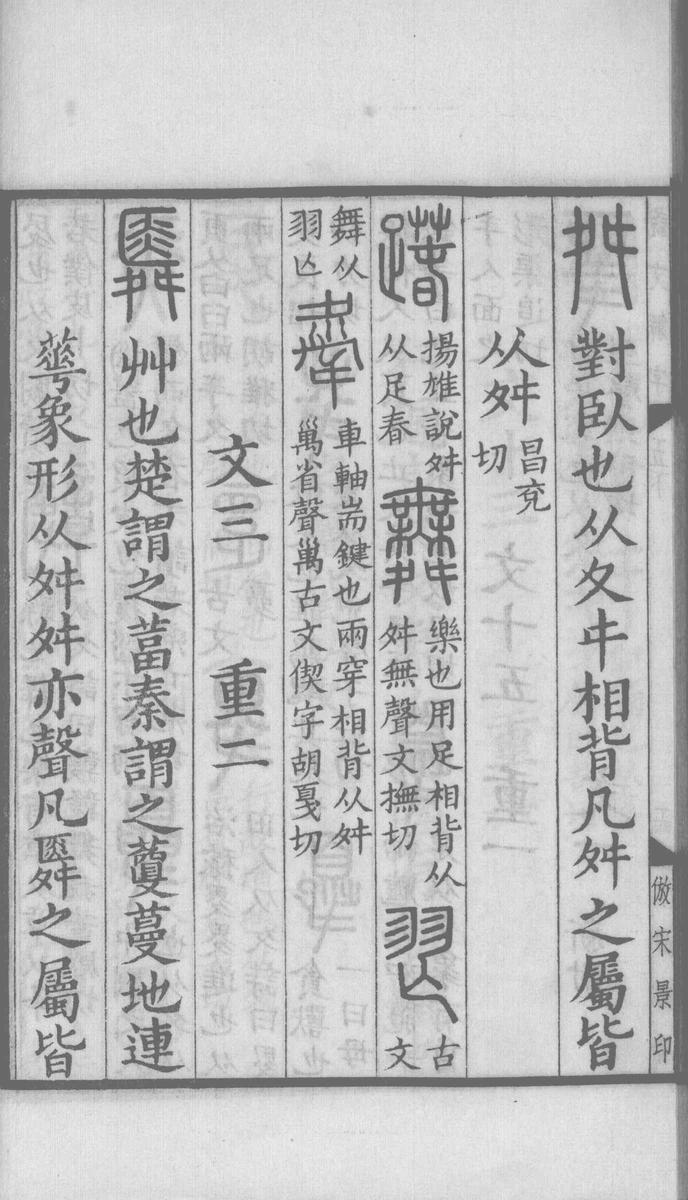 舛對臥也从夊㐄相背凡舛之屬皆
从舛昌兖切
䠢揚雄說舛从足春𦏶樂也用足相背从舛無聲文撫切𦏲古文
舞从羽亾舝車軸耑鍵也兩穿相背从舛𥜿省聲𥜿古文偰字胡戛切
文三 重二
䑞艸也楚謂之葍秦謂之藑蔓地連
蕚象形从舛舛亦聲凡䑞之屬皆
倣宋景印